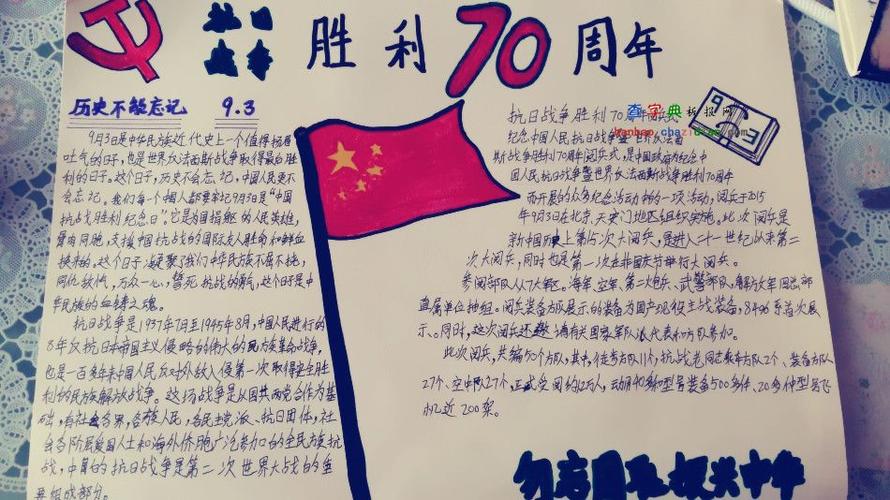 抗日
战争
胜利70周年
历史不能忘记 9.3
9月3日是中华民族近代史上一个值得扬眉
吐气的日子,也是世界反法西斯战争取得最后胜
利的日子。这个日子,历史不会忘记,中国人民更不
会忘记。我们每一个中国人都要牢记9月3日是“中国
抗战胜利纪念日”,它是为国捐躯的人民英雄,
爱国同胞,支援中国抗战的国际友人生命和鲜血
换来的。这个日子凝聚了我们中华民族不屈不挠,
同仇敌忾,万众一心,誓死抗战的勇气,这个日子是中
华民族的血铸之魂。
抗日战争是1937年7月至1945年8月,中国人民进行的
8年反抗日本帝国主义侵略的伟大的民族革命战争,
也是一百多年来中国人民反对外敌入侵第一次取得完全胜
利的民族解放战争。这场战争是以国共两党合作为基
础,有社会各界,各族人民,各民主党派、抗日团体,社
会各阶层爱国人士和海外侨胞广泛参加的全民族抗
战,中国的抗日战争是第二次世界大战的重
要组成部分。
抗日战争胜利70周年阅兵
纪念中国人民抗日战争暨世界反法西
斯战争胜利70周年阅兵式,是中国政府为纪念中
国人民抗日战争暨世界反法西斯战争胜利70周年
而开展的众多纪念活动中的一项活动,阅兵于2015
年9月3日在北京天安门地区组织实施。此次阅兵是
新中国历史上第15次大阅兵,是进入二十一世纪以来第二
次大阅兵,同时也是第一次在非国庆节举行大阅兵。
参阅部队从7大军区。海军,空军、第二火炮兵、武警部队,解放军四总部
直属单位抽组。阅兵装备方队展示的装备为国产现役主战装备,84%系首次展
示。同时,这次阅兵还邀请有关国家军队派代表和方队参加。
此次阅兵,共编50个方队,其中,徒步方队11个,抗战老同志乘车方队2个、装备方队
27个、空中梯队10个,正式受阅约1.2万人,动用40多种型号装备500多件、20多种型号飞
机近200架。
9 3
查字典板报网
banbao.chazidian.com
勿忘国耻 振兴中华